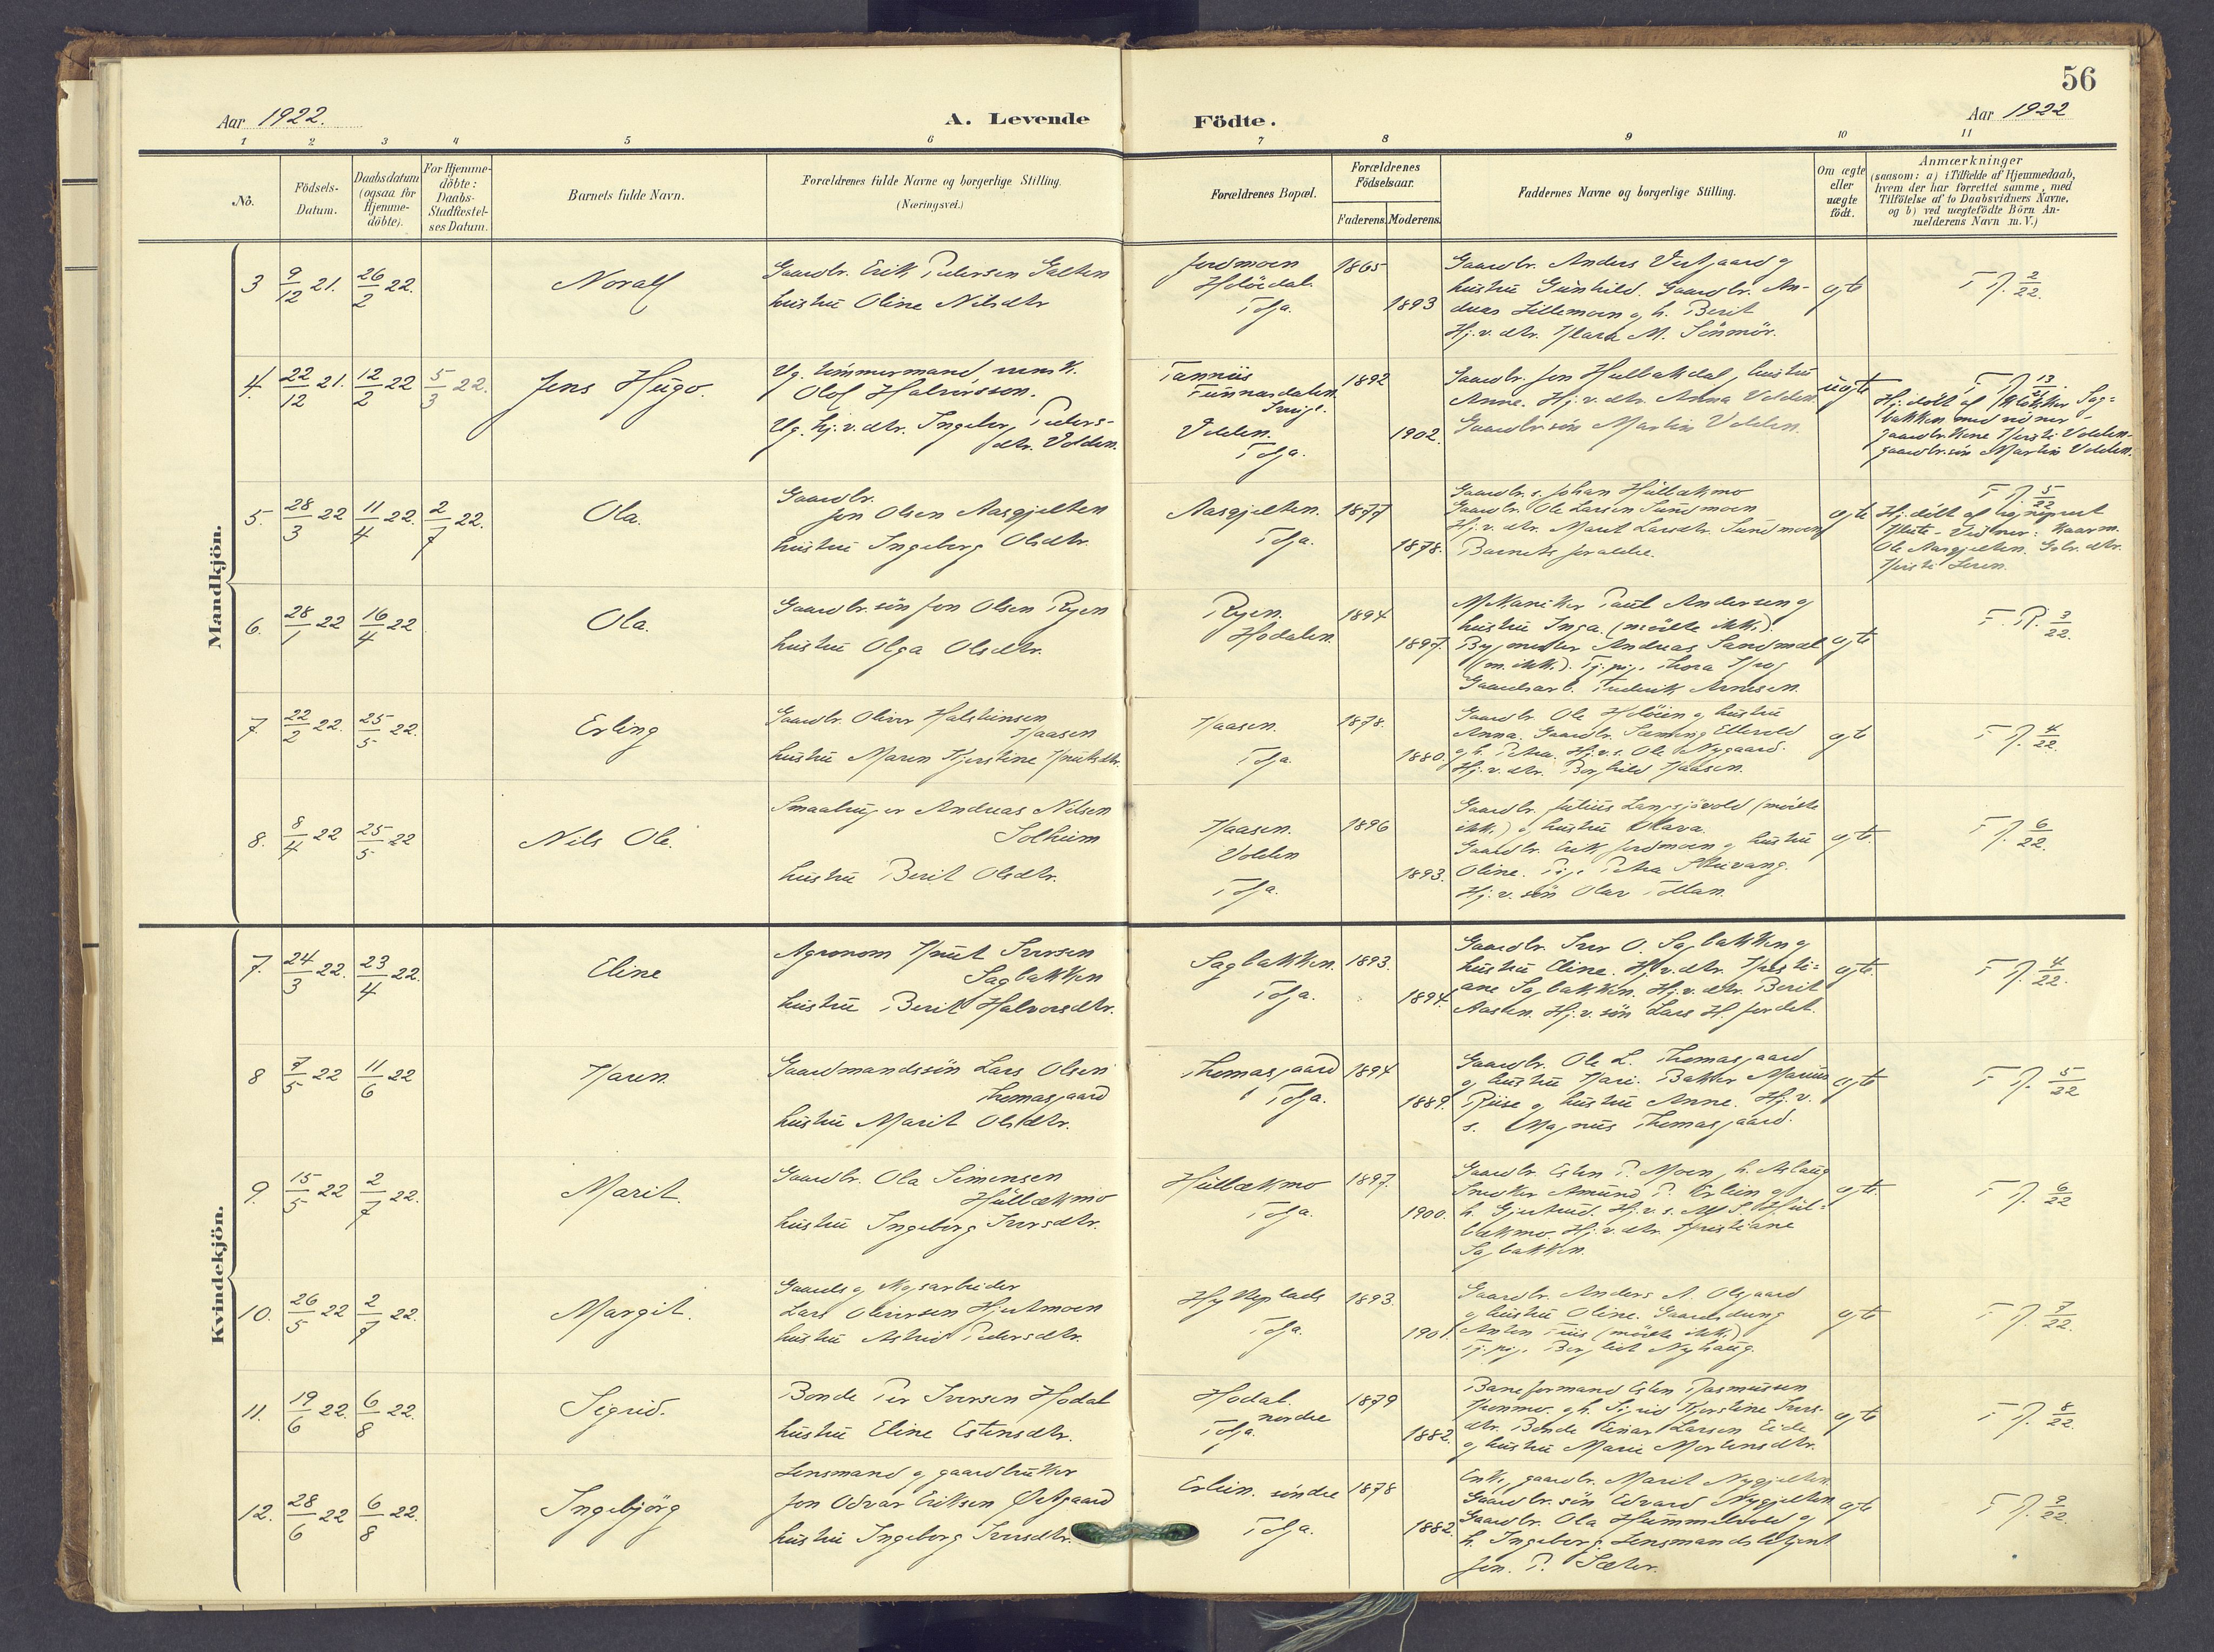 56
Aar 1922.
A. Levende Födte.
Aar 1922
1 2 3 4 5 6 7 8 9 10 11
No.
Födsels-Datum.
Daabsdatum (ogsaa for Hjemme-döbte).
For Hjemme-döbte: Daabs-Stadfæstel-ses Datum.
Barnets fulde Navn.
Forældrenes fulde Navne og borgerlige Stilling.
(Næringsvei.)
Forældrenes Bopæl.
Forældrenes Födselsaar.
Faderens. Moderens.
Faddernes Navne og borgerlige Stilling.
Om ægte eller uægte födt.
Anmærkninger
(saasom: a) i Tilfælde af Hjemmedaab,
hvem der har forrettet samme, med
Tilföielse af to Daabsvidners Navne,
og b) ved uægtefödte Börn An-
melderens Navn m. V.)
Mandkjön.
3 9/12 21. 26/2 22. Noralf
Gaardbr. Erik Pedersen Galten
hustru Oline Nilsdtr
Jordmoen
Tolga.
1865
1893
Gaardbr. Anders Vestgaard og
hustru Gunhild. Gaardbr. An-
dreas Lillemoen og h. Berit
Hj. v. dtr. Klara M. Sönmör.
ægte
2/22.
4. 22/12 21. 12/2 22 5/3 22. Jens Hugo.
Ug. tömmermand
Olof Halvarsson.
Ug. hj. v. dtr. Ingeborg Peders-
dtr. Volden.
Tännäs
Funnasdalen.
Sverige.
Volden.
Tolga.
1892
1902.
Gaardbr. Jon Hulbækdal, hustru
Anne. Hj. v. dtr. Anna Volden
Gaardbr.sön Martin Volden.
uægte
Hj. döbt af Klokker Sag-
bakken med vidner
gaardbr.kone Kirsti Volden
gaardbr.sön Martin Volden.
5. 28/3 22 11/4 22. 2/7 22. Ola.
Gaardbr.
Jon Olsen Aasgjelten
hustru Ingeborg Olsdtr.
Aasgjelten.
Tolga.
1877
1878.
Gaardbr. s. Johan Hulbækmo
Gaardbr. Ole Larsen Sundmoen
Hj. v. dtr. Marit Larsdtr. Sundmoen
Barnets forældre.
ægte
5/22
Hj. döbt af sogneprest
Vidner:
Ole Aasgjelten. Gbr. dtr.
Kirsti
6. 28/1 22 16/4 22 Ola.
Gaardbr. sön Jon Olsen Ryen
hustru Olga Olsdtr.
Ryen.
Hodalen.
1894
1897.
Mekaniker Paul Andersen og
hustru Inga. (mödte ikke).
Bygmester Andreas Sandmæl
(m. ikke). Tj. pig. Thora
Gaardsarb. Fredrik Arnesen.
ægte
3/22.
7. 22/2 22. 25/5 22. Erling
Gaardbr. Oliver Halstensen
Kaasen
hustru Maren Kjerstine Knutsdtr.
Kaasen.
Tolga.
1878.
1880.
Gaardbr. Ole og hustru
Anna. Gaardbr. Sæming Ellevold
og h. Petra. Hj. v. s. Ole Nygaard.
Hj. v. dtr. Borghild Kaasen.
ægte
4/22.
8. 8/4 22 25/5 22 Nils Ole.
Smaabruger Andreas Nilsen
Solheim
hustru Berit Olsdtr.
Kaasen.
Volden
Tolga.
1896
1893.
Gaardbr. Julius Langsjövold (mödte
ikke) og hustru Olava.
Gaardbr. Erik Jordmoen og hustru
Oline. Pige Petra
Hj. v. sön Olav Tollan.
ægte.
6/22.
Kvindekjön.
7. 24/3 22. 23/4 22. Eline
Agronom Knut Iversen
Sagbakken
hustru Berit Halvorsdtr.
Sagbakken.
Tolga.
1893.
1894.
Gaardbr. Iver O. Sagbakken og
hustru Eline. Hj. v. dtr. Kristi-
ane Sagbakken. Hj. v. dtr. Berit
Aasen. Hj. v. sön Lars H. Jordet.
ægte.
4/22.
8 7/5 22 11/6 22 Karen.
Gaardmandssön Lars Olsen
Thomasgaard
hustru Marit Olsdtr.
Thomasgaard
Tolga.
1894
1889.
Gaardbr. Ole L. Thomasgaard
og hustru Kari. Baker Marius
Riise og hustru Anne. Hj. v.
s. Magnus Thomasgaard.
ægte
5/22
9. 15/5 22 2/7 22. Marit.
Gaardbr. Ola Simensen
Hulbækmo
hustru Ingeborg Iversdtr.
Hulbækmo
Tolga.
1897.
1900.
Gaardbr. Esten P. Moen, h. Aslaug
Snekker Amund P. Erlien og
h. Gjertrud. Hj. v. s. S. Hul-
bækmo. Hj. v. dtr. Kristiane
Sagbakken.
ægte.
6/22
10. 26/5 22 2/7 22. Margit.
Gaards og Mysarbeider
Lars Oliversen Hjertmoen
hustru Astrid Pedersdtr.
Hytteplads
Tolga.
1893.
1901.
Gaardbr. Anders A. Olsgaard
og hustru Oline. Gaardsdreng
Anton (mödte ikke)
Tj. pig. Bergliot Nyhaug.
ægte
7/22.
11. 19/6 22. 6/8 22. Sigrid.
Bonde Per Iversen Hodal
hustru Eline Estensdtr.
Hodal
nordre
Tolga.
1879
1882.
Baneformand Esten Rasmussen
og h. Sigrid Kjerstine Ivers-
dtr. Bonde Einar Larsen Eide
og hustru Marie Mortensdtr.
ægte
8/22.
12. 28/6 22 6/8 22. Ingebjörg
Lensmand og gaardbruker
Jon Odvar Eriksen Östgaard
hustru Ingeborg Iversdtr.
Erlien. söndre
Tolga.
1878
1882.
Enke, gaardbr. Marit Nygjelten
Gaardbr. sön Edvard Nygjelten
Gaardbr. Ola Hummelvold og
h. Ingeborg. Lensmandsbetjent
Jon. P. Sæter.
ægte
9/22.